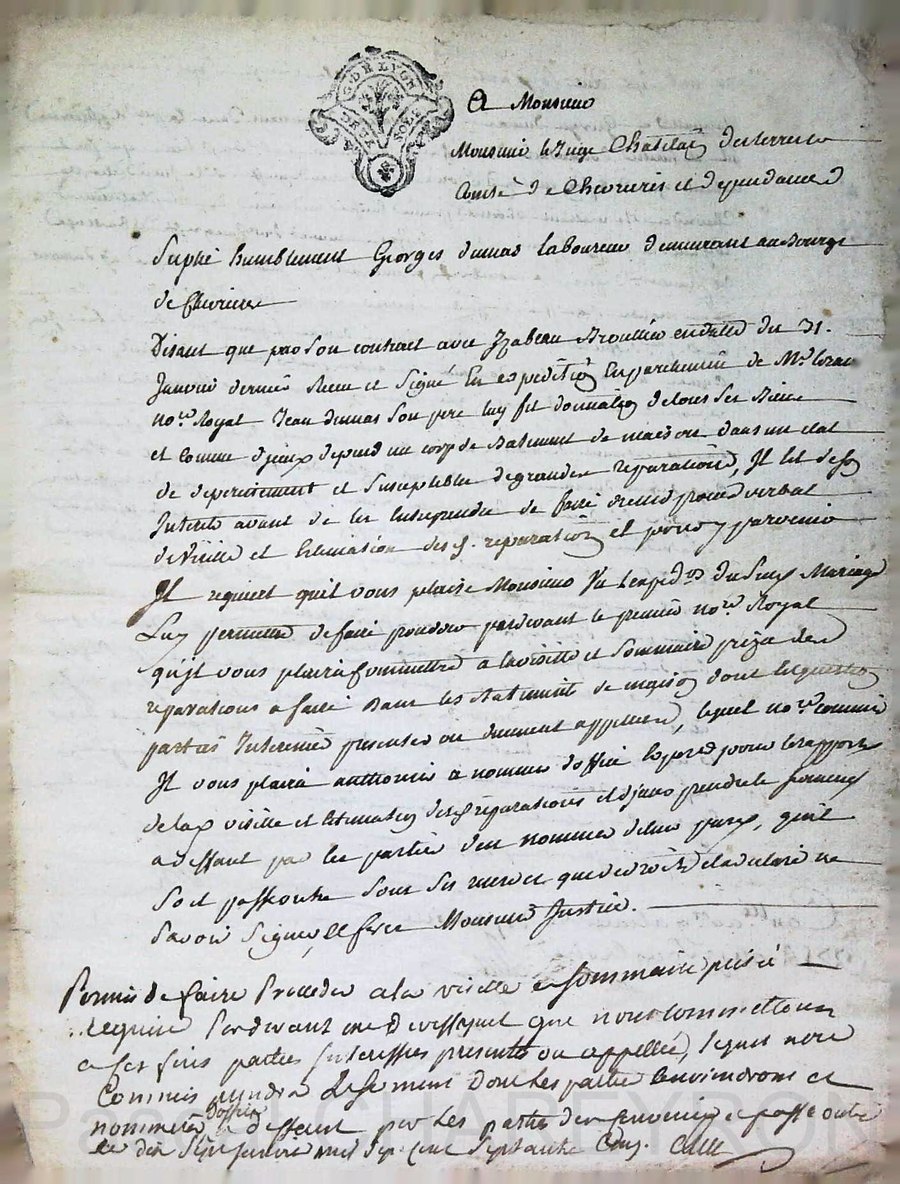 G. DE LYON
A Monsieur
Monsieur le Juge Chatelain des terres
Comté de Chevrieres et dependances
Suplie humblement Georges dumas laboureur demeurant au Bourg
de Chevriere
Disant que par son contract avec Izabeau en datte du 31.
Janvier dernier Receu et signé En expedition En parchemin de Mr
nore. Royal Jean dumas son pere luy fit donnation de tous ses Biens
et comme d'jceux depend un corp de Batiment de maison dans un etat
de deperissement et suseptible de grandes reparations, Il Est de son
Interets avant de les Entreprendre de faire dresser procès verbal
de visitte et Estimation des d. reparations et pour y parvenir
Il requiert quil vous plaise Monsieur Vu du Mariage
Luy permettre de faire proceder pardevant le premier nore. Royal
qu'jl vous plaira Commettre a la visitte et sommaire prizée des
reparations a faire dans les Batiments de maison dont
parties Interessées presentes ou duement appellées, lequel nore. commis
Il vous plaira authoriser a nommer d'office Experts pour le rapport
de la d. visitte et Estimation des d. reparations et d'jceux prendre le serment
a deffaut par les parties d'en nommer , qu'il
soit passé outre sous ses et a declaré ne
savoir signer, et ferez Monsieur Justice.
Permis de faire Proceder a la visitte et sommaire prisée
requise Pardevant me que nous commettons
a ces fins parties Interessées presentes ou appellées, lequel nore
Commis prendra le serment dont les parties Conviendront et
d'office
nommera a deffaut par les parties d'en convenir et passé outre
ce dix sept janvier mil sept cent septante cinq.
Pascal CHAPEYRON